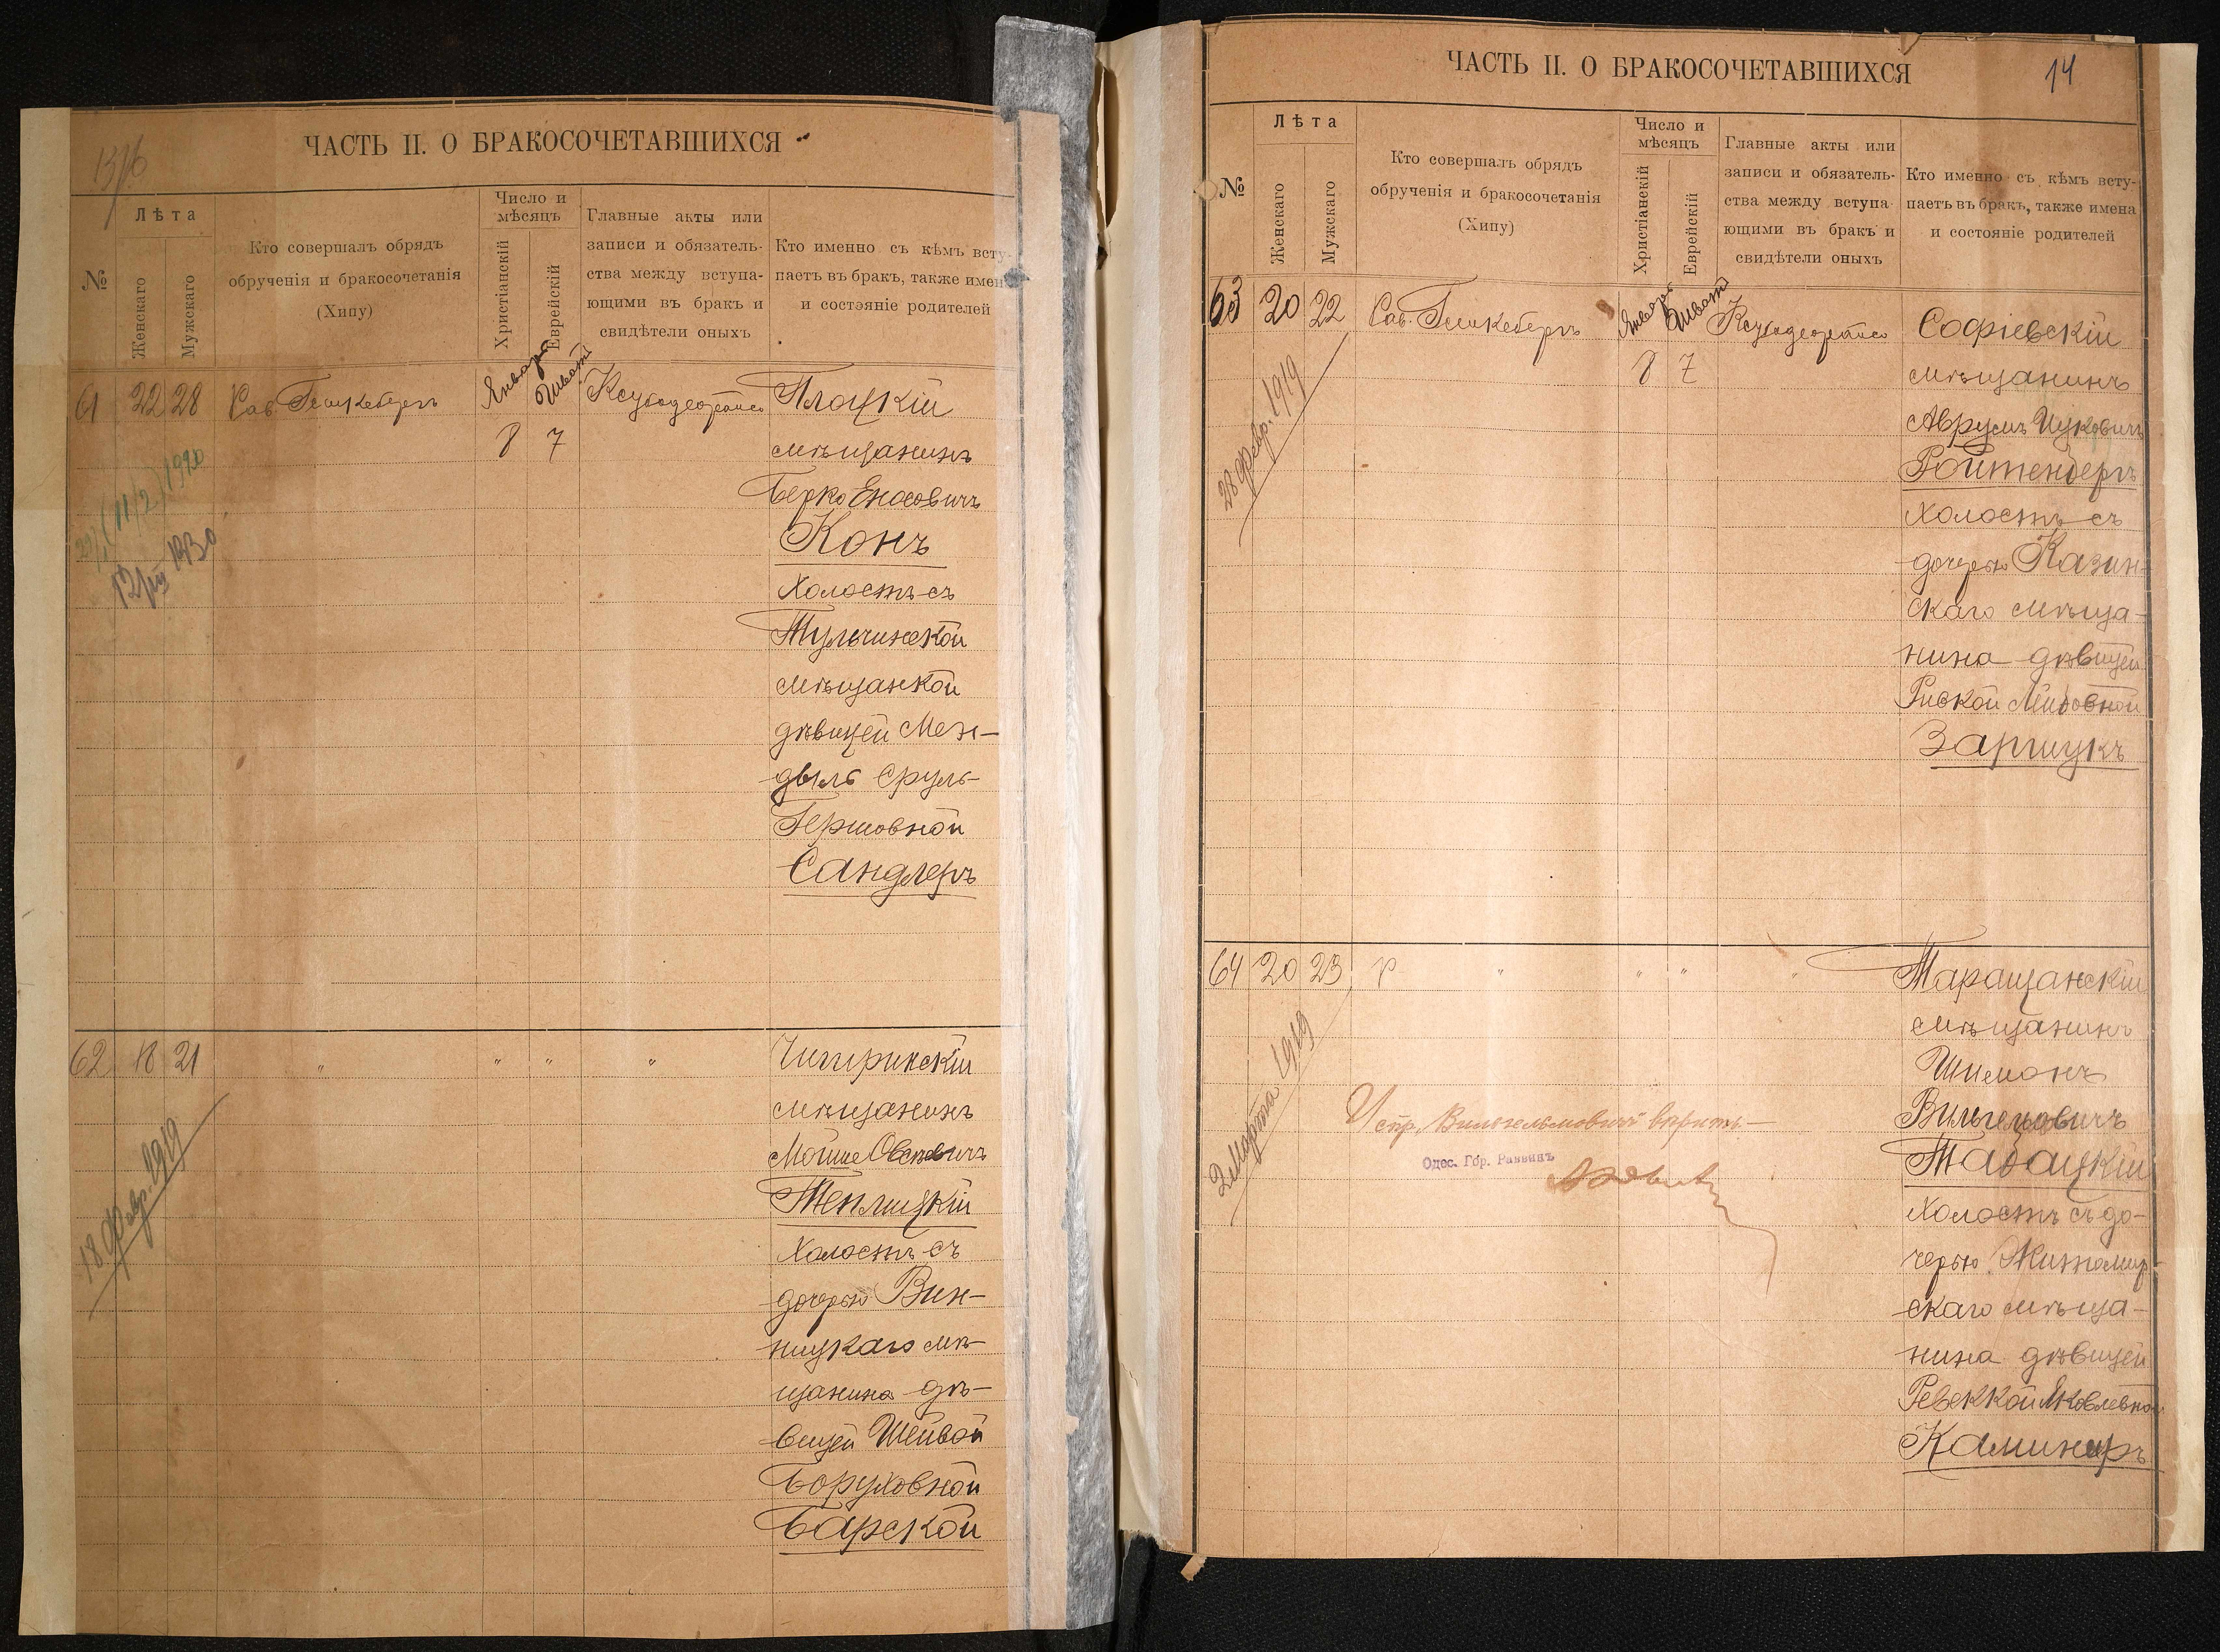 13/16
ЧАСТЬ II. О БРАКОСОЧЕТАВШИХСЯ
№
Лѣта
Женскаго
Мужскаго
Кто совершалъ обрядъ
обрученія и бракосочетанія
(Хипу)
Число и
мѣсяцъ
Христіанскій
Еврейскій
Главные акты или
записи и обязатель-
ства между вступа-
ющими въ бракъ и
свидѣтели оныхъ
Кто именно съ кѣмъ всту-
паетъ въ бракъ, также имена
и состояніе родителей
61 22 28 Рав. Гешкебергъ Январь 8 Шватъ 7
Плоцкій
мѣщанинъ
Берко Еносовичъ
Конъ
холостъ съ
Тульчинской
мѣщанкой
дѣвицей Мен-
дыль Сруль-
Гершовной
Сандлеръ
(11/2) 1920
12/III 1930
62 18 21 " " " "
Чигиринскій
мѣщанинъ
Мойше Овсѣевичъ
Теплицкій
холостъ съ
дочерью Вин-
ницкаго мѣ-
щанина дѣ-
вицей Шейвой
Боруховной
Барской
18 Февр. 1919
ЧАСТЬ II. О БРАКОСОЧЕТАВШИХСЯ
14
№
Лѣта
Женскаго
Мужскаго
Кто совершалъ обрядъ
обрученія и бракосочетанія
(Хипу)
Число и
мѣсяцъ
Христіанскій
Еврейскій
Главные акты или
записи и обязатель-
ства между вступа
ющими въ бракъ и
свидѣтели оныхъ
Кто именно съ кѣмъ всту-
паетъ въ бракъ, также имена
и состояніе родителей
63 20 22 Рав. Гешкебергъ Январь 8 Шватъ 7
Софіевскій
мѣщанинъ
Аврумъ Ицковичъ
Ройтенбергъ
холостъ съ
дочерью Казин-
скаго мѣща-
нина дѣвицей
Ривкой Лейбовной
Заришукъ
28 Февр. 1919
64 20 23 Р " " " "
Таращанскій
мѣщанинъ
Шимонъ
Вильгемовичъ
Табацкій
холостъ съ до-
черью Житомир-
скаго мѣща-
нина дѣвицей
Ревеккой Яковлевной
Каминеръ
2 Марта 1919
Испр. Вильгельмовичъ вѣрить
Одес. Гор. Раввинъ